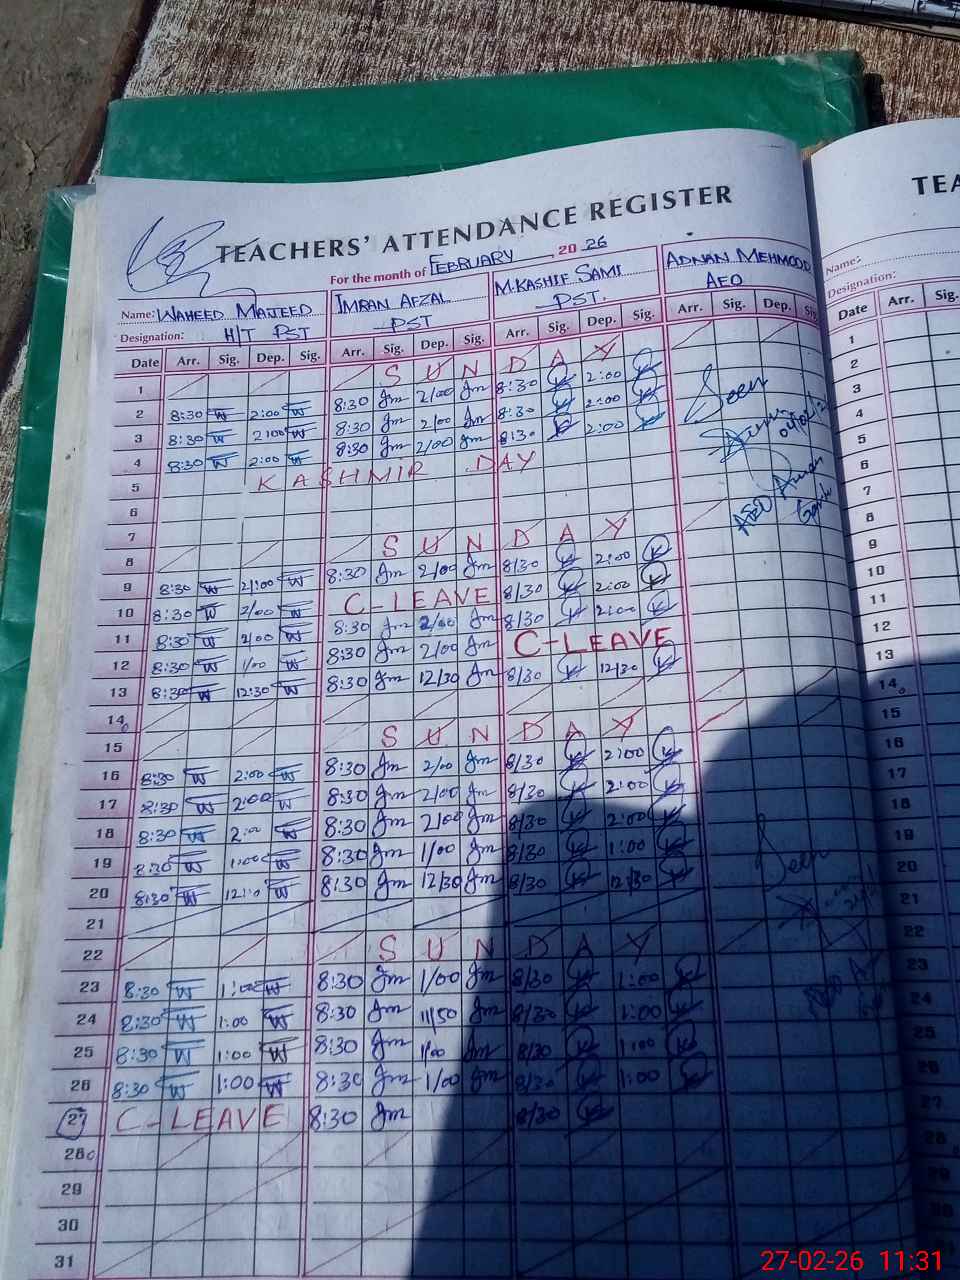 TEACHERS' ATTENDANCE REGISTER
For the month of FEBRUARY 20 26
Name: WAHEED MAJEED IMRAN AFZAL M.KASHIF SAMI ADNAN MEHMOOD
Designation: H/T PST PST PST. AEO
Date Arr. Sig. Dep. Sig. Arr. Sig. Dep. Sig. Arr. Sig. Dep. Sig. Arr. Sig. Dep. Sig.
1 SUNDAY
2 8:30 W 2:00 W 8:30 Jm 2/00 Jm 8:30 K 2:00 K Seen
3 8:30 W 2:00 W 8:30 Jm 2/00 Jm 8:30 K 2:00 K
4 8:30 W 2:00 W 8:30 Jm 2/00 Jm 8:30 K 2:00 K
5 KASHMIR DAY
6
7
8 SUNDAY
9 8:30 W 2/:00 W 8:30 Jm 2/00 Jm 8/30 K 2:00 K
10 8:30 W 2/00 W C-LEAVE 8/30 K 2:00 K
11 8:30 W 2/00 W 8:30 Jm 2/00 Jm 8/30 K 2:00 K
12 8:30 W 1/00 W 8:30 Jm 2/00 Jm C-LEAVE
13 8:30 W 12:30 W 8:30 Jm 12/30 Jm 8/30 K 12/30 K
14
15 SUNDAY
16 8:30 W 2:00 W 8:30 Jm 2/00 Jm 8/30 K 2:00 K
17 8:30 W 2:00 W 8:30 Jm 2/00 Jm 8/30 K 2:00 K
18 8:30 W 2:00 W 8:30 Jm 2/00 Jm 8/30 K 2:00 K
19 8:30 W 1:00 W 8:30 Jm 1/00 Jm 8/30 K 1:00 K Seen
20 8:30 W W 8:30 Jm 12/30 Jm 8/30 K 12/30 K
21
22 SUNDAY
23 8:30 W 1:00 W 8:30 Jm 1/00 Jm 8/30 K 1:00 K
24 8:30 W 1:00 W 8:30 Jm 11/50 Jm 8/30 K 1:00 K
25 8:30 W 1:00 W 8:30 Jm 1/00 Jm 8/30 K 1:00 K
26 8:30 W 1:00 W 8:30 Jm 1/00 Jm 8/30 K 1:00 K
27 C-LEAVE 8:30 Jm 8/30 K
28
29
30
31
TEA
Name:
Designation:
Date Arr. Sig.
1
2
3
4
5
6
7
8
9
10
11
12
13
14
15
16
17
18
19
20
21
22
23
24
25
26
27
28
29
30
27-02-26 11:31